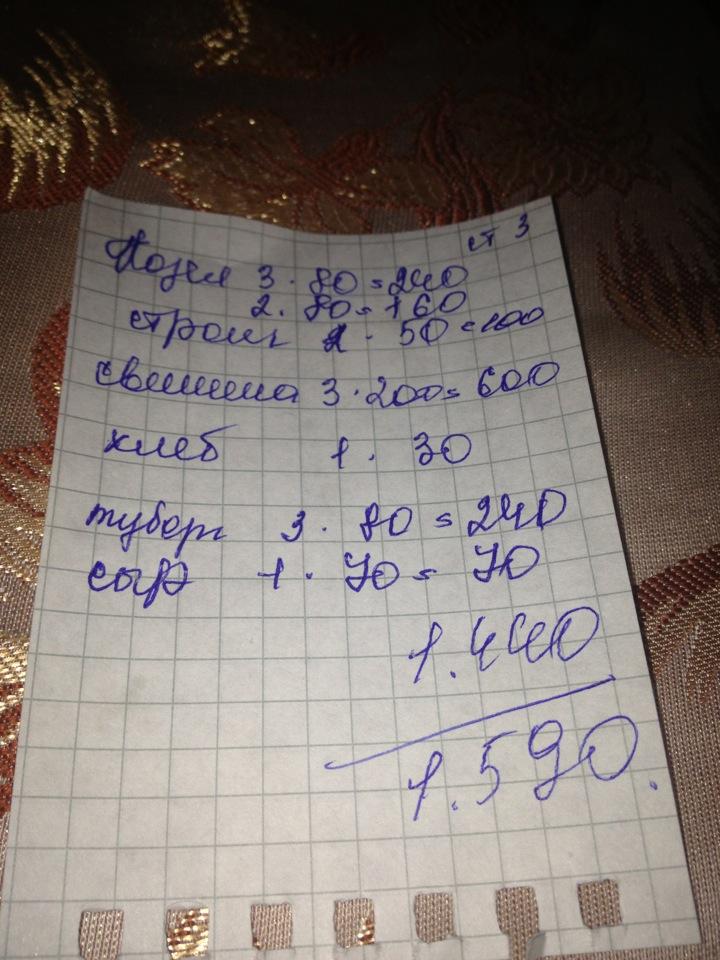 ст 3
Козел 3 · 80 = 240
2 · 80 = 160
строиг 2 · 50 = 100
свинина 3 · 200 = 600
хлеб 1 · 30
туборг 3 · 80 = 240
сыр 1 · 70 = 70
1.440
1.590.